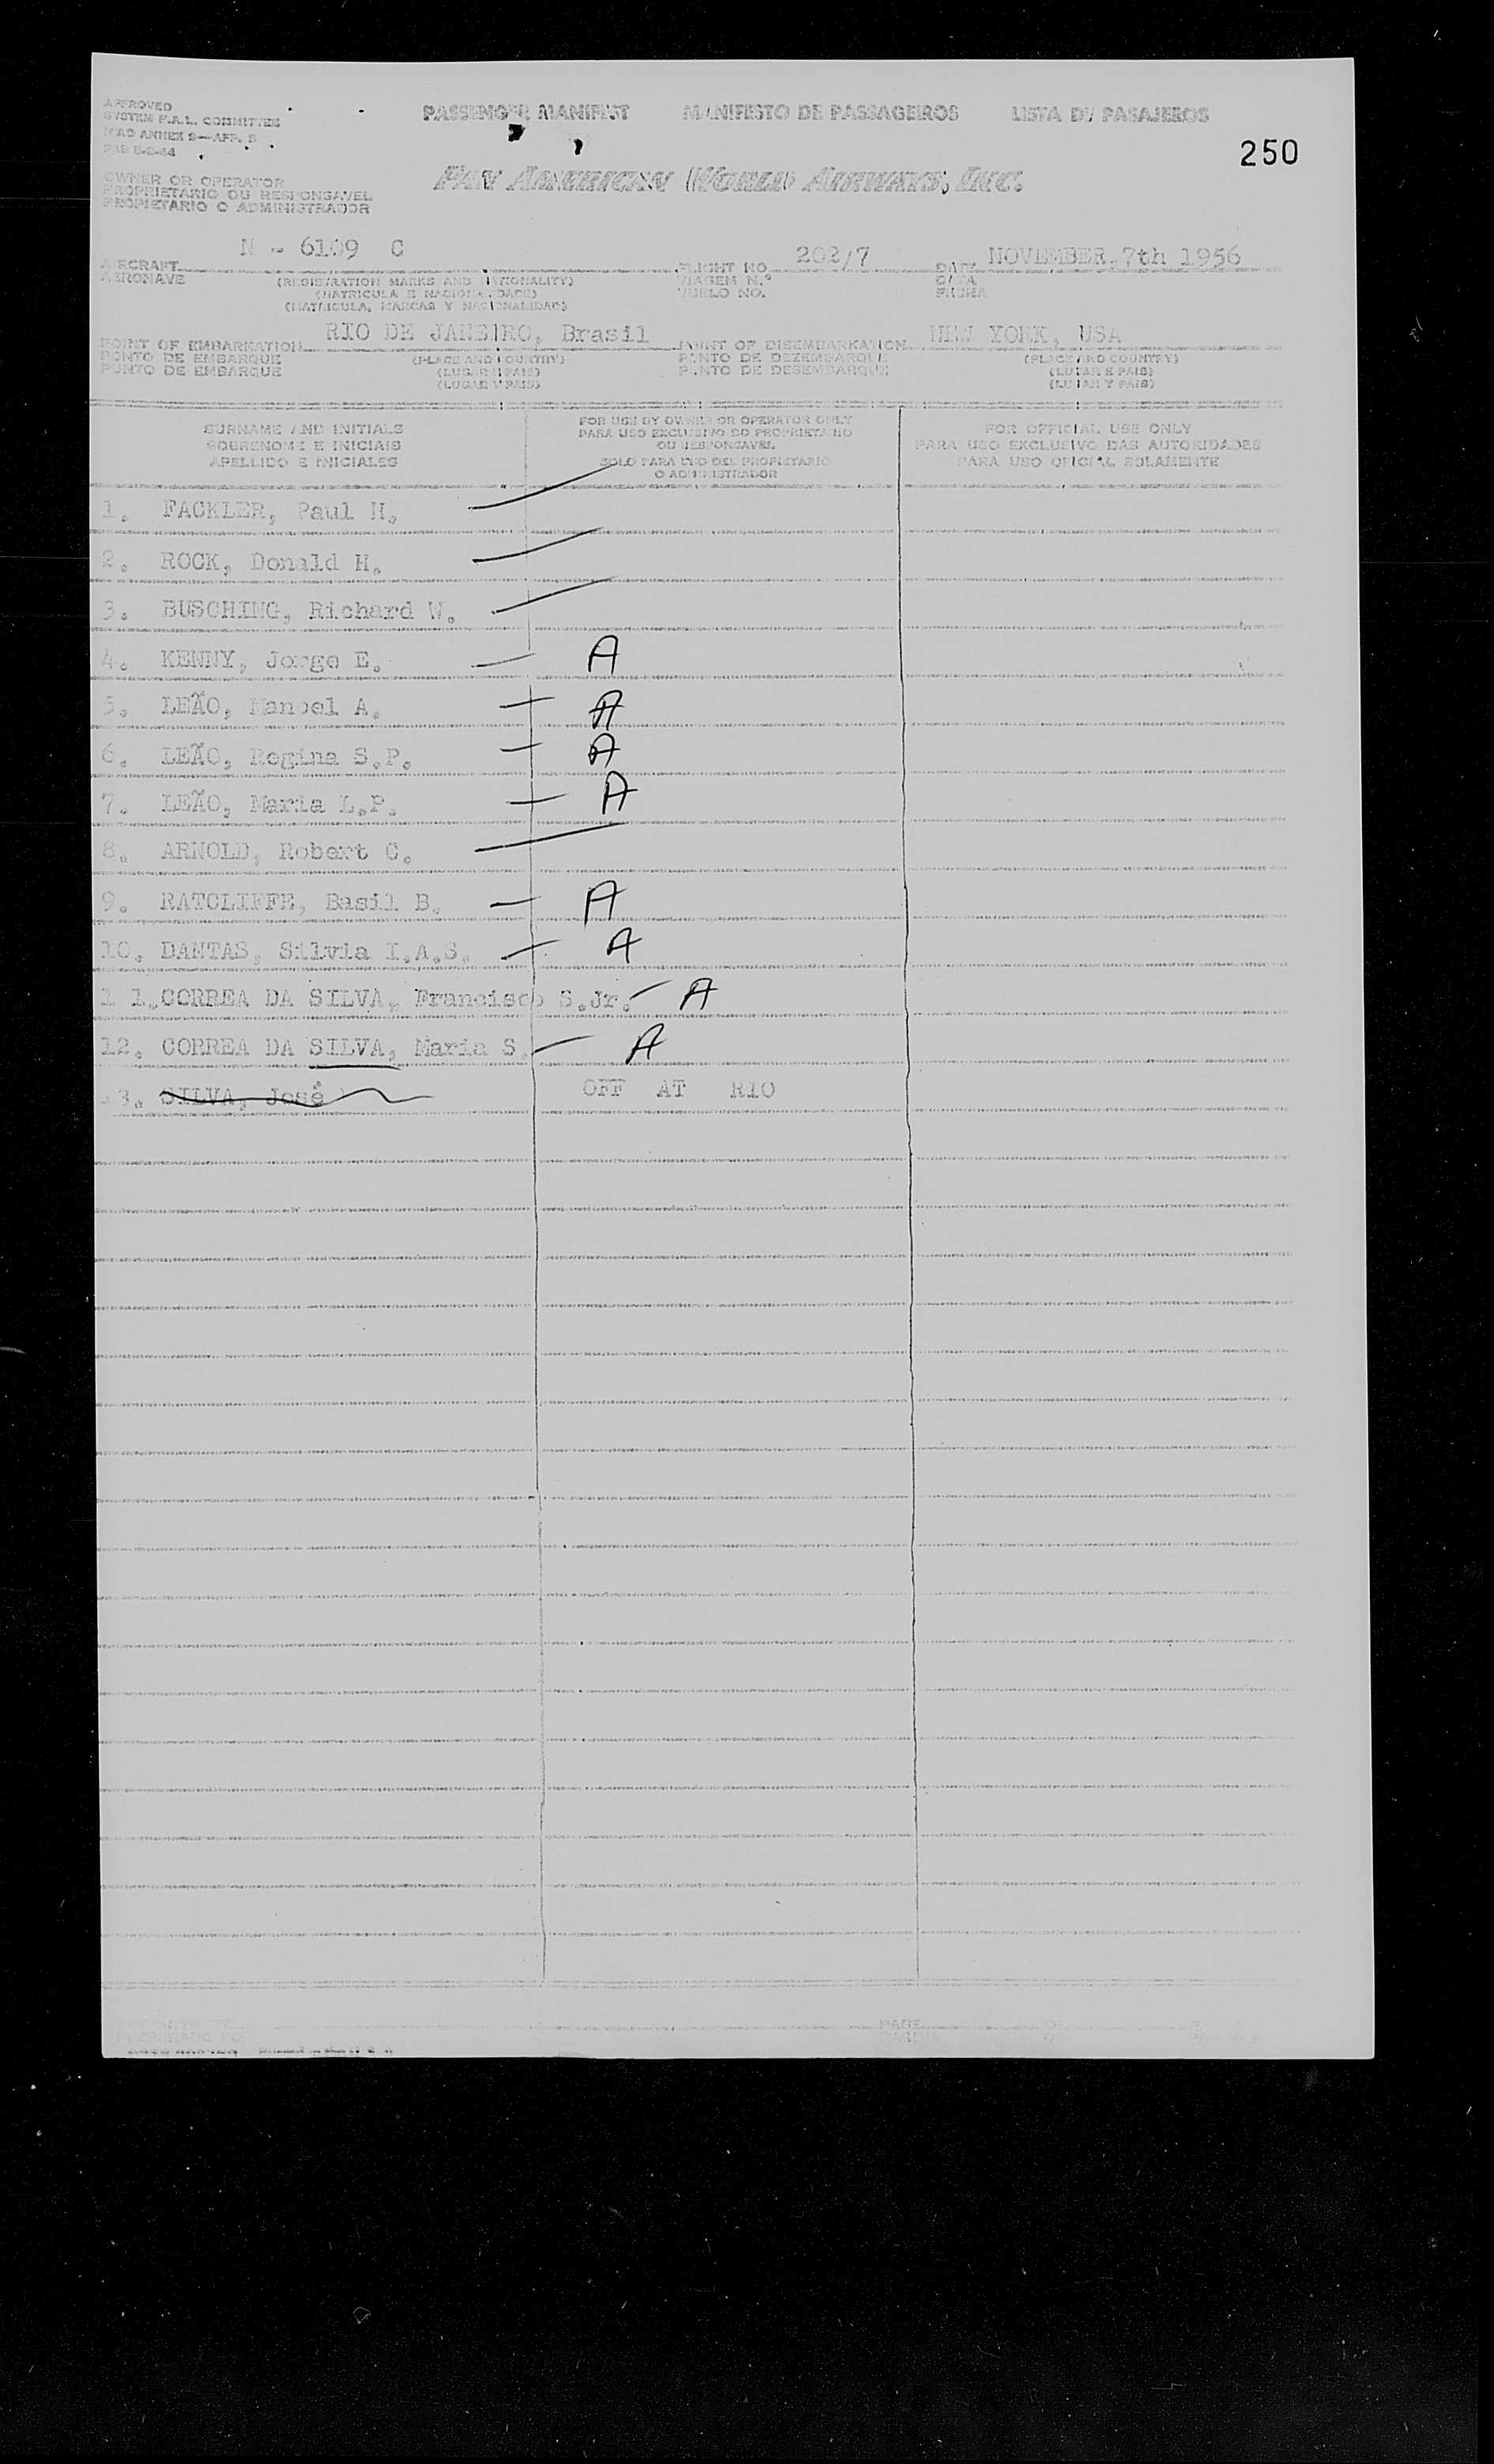 APPROVED
SYSTEM F.A.L. COMMITTEE
ICAO ANNEX 9—APP. B
PASSENGER MANIFEST MANIFESTO DE PASSAGEIROS LISTA DE PASAJEROS
250
OWNER OR OPERATOR
PROPRIETARIO OU RESPONSAVEL
PROPIETARIO O ADMINISTRADOR
PAN AMERICAN WORLD AIRWAYS, INC.
N - 6109 C 202/7 NOVEMBER, 7th 1956
AIRCRAFT FLIGHT NO. DATE
AERONAVE (REGISTRATION MARKS AND NATIONALITY) VIAGEM N.º DATA
(MATRICULA E NACIONALIDADE) VUELO NO. FECHA
(MATRICULA, MARCAS Y NACIONALIDAD)
RIO DE JANEIRO, Brasil NEW YORK, USA
POINT OF EMBARKATION POINT OF DISEMBARKATION
PONTO DE EMBARQUE (PLACE AND COUNTRY) PONTO DE DEZEMBARQUE (PLACE AND COUNTRY)
PUNTO DE EMBARQUE (LUGAR E PAIS) PUNTO DE DESEMBARQUE (LUGAR E PAIS)
(LUGAR Y PAIS) (LUGAR Y PAIS)
SURNAME AND INITIALS
SOBRENOME E INICIAIS
APELLIDO E INICIALES
FOR USE BY OWNER OR OPERATOR ONLY
PARA USO EXCLUSIVO DO PROPRIETARIO
OU RESPONSAVEL
SOLO PARA USO DEL PROPIETARIO
O ADMINISTRADOR
FOR OFFICIAL USE ONLY
PARA USO EXCLUSIVO DAS AUTORIDADES
PARA USO OFICIAL SOLAMENTE
1. FACKLER, Paul H.
2. ROCK, Donald H.
3. BUSCHING, Richard W.
4. KENNY, Jorge E. — A
5. LEÃO, Manoel A. — A
6. LEÃO, Regina S.P. — A
7. LEÃO, Maria L.P. — A
8. ARNOLD, Robert C.
9. RATCLIFFE, Basil B. — A
10. DANTAS, Silvia I.A.S. — A
1 1. CORREA DA SILVA, Francisco S.Jr. — A
12. CORREA DA SILVA, Maria S. — A
13. SILVA, José OFF AT RIO
PAGE